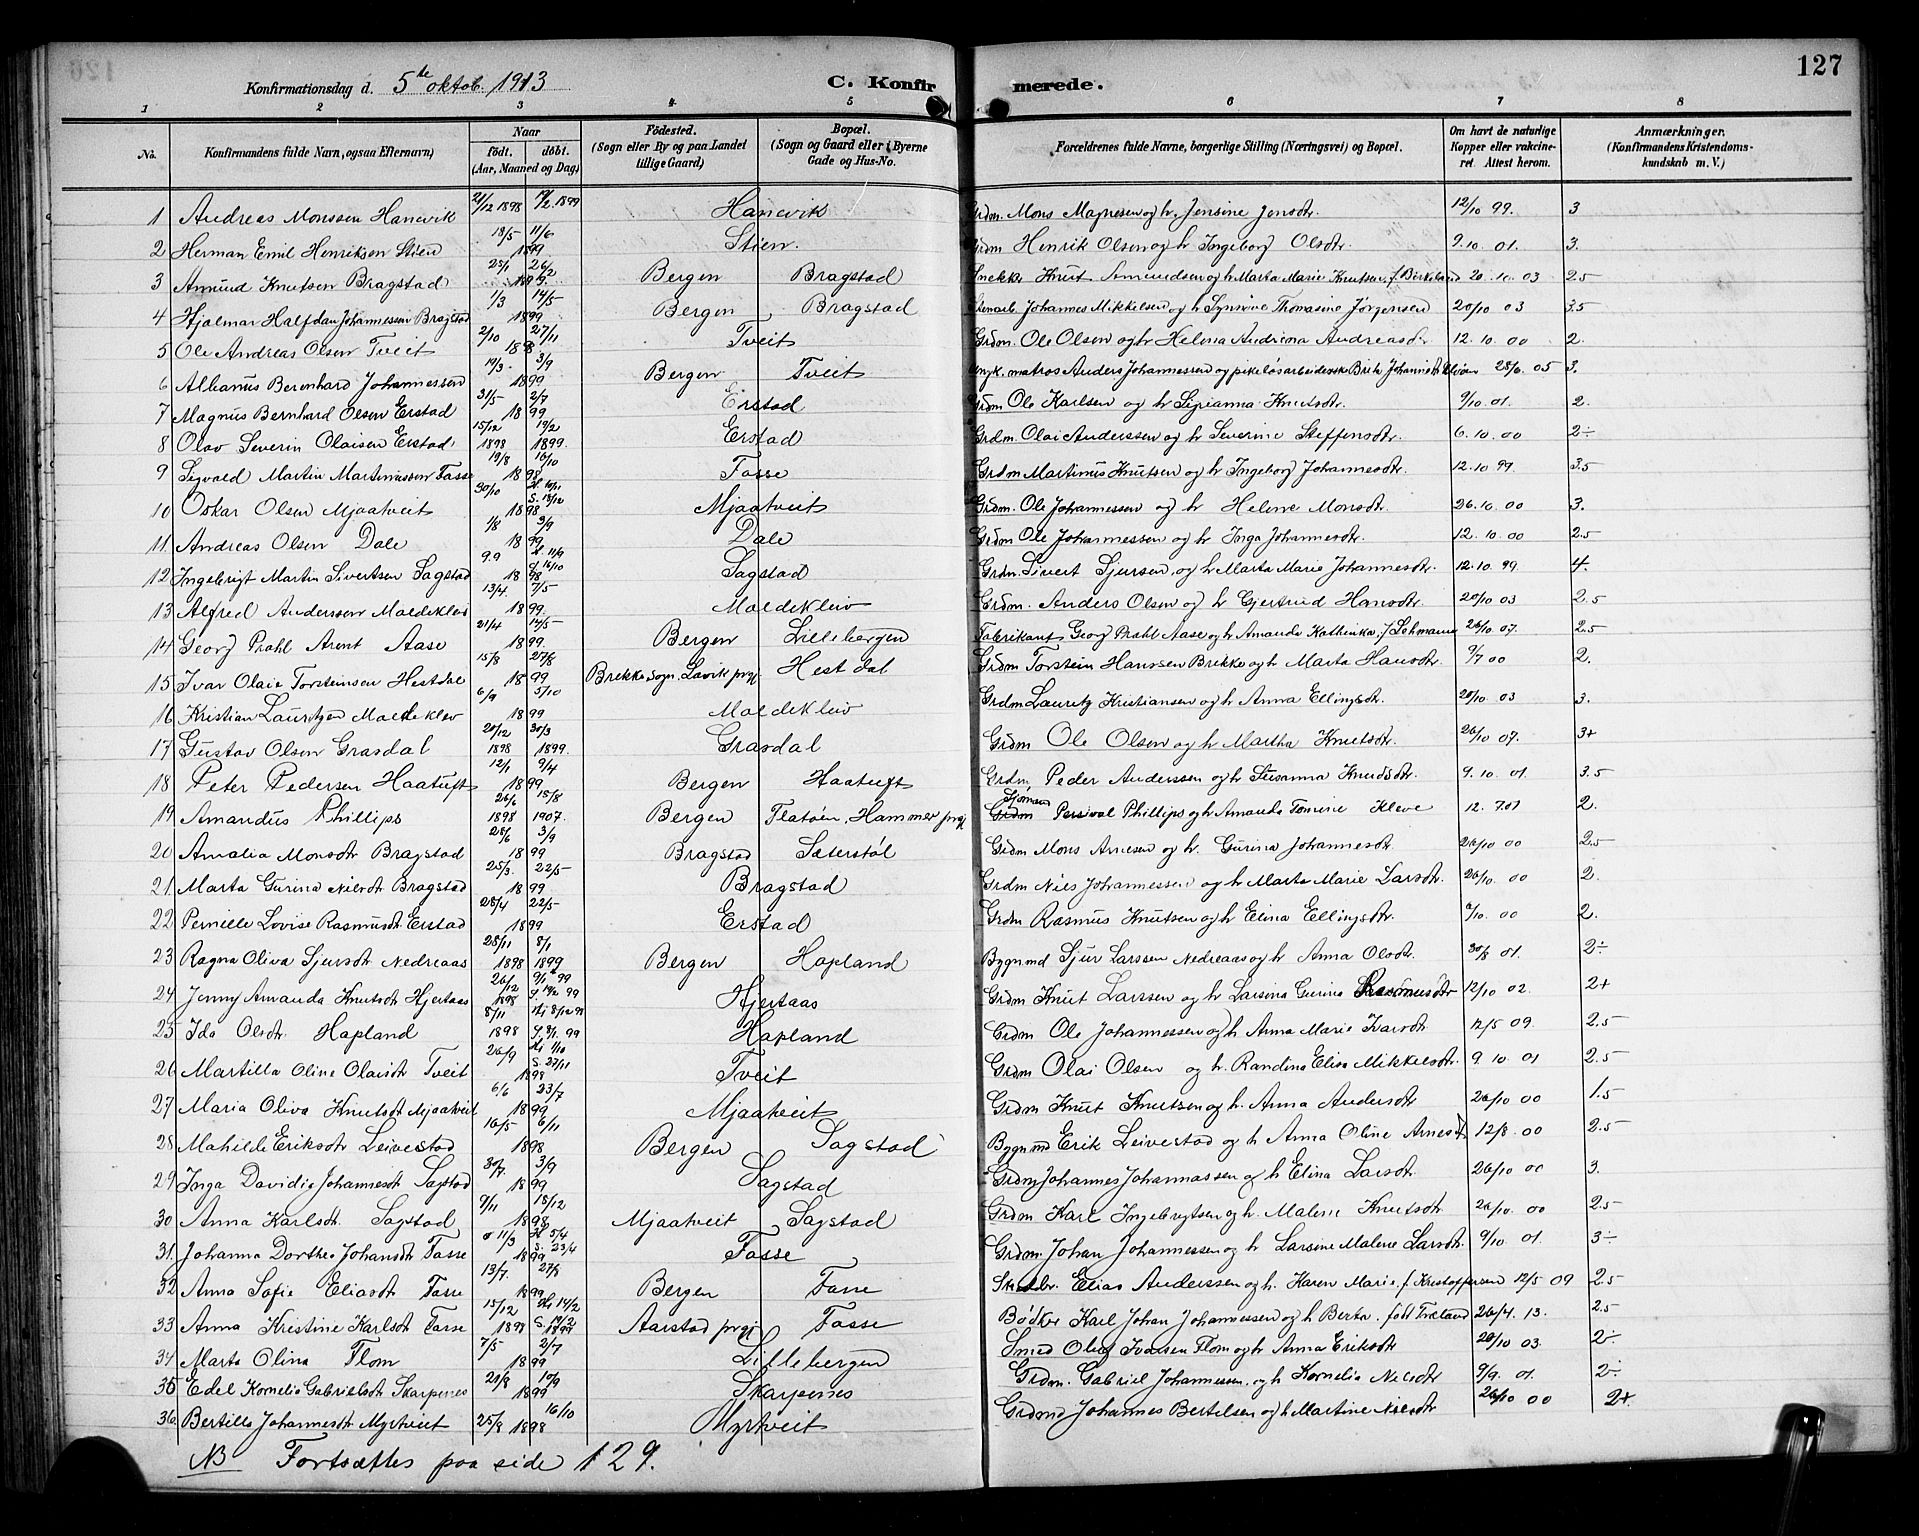 127
Konfirmationsdag d. 5te oktob. 1913
C. Konfirmerede.
1 2 3 4 5 6 7 8
No.
Konfirmandens fulde Navn, ogsaa Efternavn)
Naar
födt. döbt.
(Aar, Maaned og Dag)
Födested.
(Sogn eller By og paa Landet
tillige Gaard)
Bopæl.
(Sogn og Gaard eller i Byerne
Gade og Hus-No.
Forældrenes fulde Navne, borgerlige Stilling (Næringsvei) og Bopæl.
Om havt de naturlige
Kopper eller vakcine-
ret. Attest herom.
Anmærkninger.
(Konfirmandens Kristendoms-
kundskab m. V.)
1 Andreas Monssen Hanevik 21/12 1898 Hanevik Grdm. Mons Magnesen og h. Jensine Jensdtr. 12/10 99. 3
2 Herman Emil Henriksen Stien 18/5 11/6 1899 Stien. Grdm Henrik Olsen og h Ingeborg Olsdtr. 9.10.01. 3.
3 Amund Knutsen Bragstad 25/1 26/2 1899. Bergen Bragstad Snekker Knut Amundsen og h Marta Marie Knutsen, f. Birkeland 20.10.03 2.5
4 Hjalmar Halfdan Johannessen Bragstad 1/3 14/5 1899 Bergen Bragstad Johannes Mikkelsen og h Synnöve Thomasine Jörgensen 20/10 03 3.5
5 Ole Andreas Olsen Tveit 2/10 27/11 1898 Tveit Grdm. Ole Olsen og h Helena Andrina Andreasdr 12.10.00 2.
6 Albanus Berenhard Johannessen 19/3. 3/9 1899 Bergen Tveit matros Anders Johannessen og 28/6. 05 3.
7 Magnus Bernhard Olsen Erstad 31/5 2/7 1899 Erstad Grdm Ole Karlsen og h Sirianna Knutsdtr. 9/10.01. 2.
8 Olav Severin Olaisen Erstad 15/12 1898 19/2 1899. Erstad Grdm. Olai Anderssen og h Severine Steffensdtr. 6.10.00 2÷
9 Sigvald Martin Martinussen Fosse 19/8 16/10 1898 Fosse Grdm Martinus Knutsen og h Ingeborg Johannesdtr. 12.10.99. 3.5
10 Oskar Olsen Mjaatveit 30/10 S. 18/12 1898 Mjaatveit Grdm. Ole Johannessen og h Helene Monsdtr. 26.10.00 3.
11. Andreas Olsen Dale 1/8 3/9 1899. Dale Grdm Ole Johannessen og h Inga Johannesdtr. 12.10.00 2.5
12 Ingebrigt Martin Sivertsen Sagstad 9.9 1898 Sagstad Grdm. Sivert Sjursen, og h Marta Marie Johannesdtr. 12.10.99. 4.
13 Alfred Anderssen Moldekleiv 13/4. 7/5 1899. Moldekleiv Grdm. Anders Olsen og h Gjertrud Hansdtr. 20/10 03 2.5
14 Georg Prahl Arent Aase 21/4 14/5 1899. Bergen Lillebergen Fabrikant Georg Prahl Aase og h Amanda Kathinka f. Sehmann 26/10 07. 2.5
15 Ivar Olaie Torsteinsen Hestdal 15/8 27/8 1899 Brekke sogn. Lavik prgj Hestdal Grdm Torstein Hanssen Brekke og h Marta Hansdtr. 9/7 00 2.
16 Kristian Lauritzen Moldeklev 6/9 5/10 1899 Moldekleiv Grdm Lauritz Kristiansen og h Anna Ellingsdtr. 20/10 03 3.
17 Gustav Olsen Grasdal 20/12 1898 30/3 1899. Grasdal Grdm Ole Olsen og h Martha Knutsdtr. 26/10 07. 3+
18 Peter Pedersen Haatuft 12/1 9/4 1899 Bergen Haatuft Grdm. Peder Anderssen og h Susanna Knudsdtr. 9.10.01. 3.5
19 Amandus Phillips 26/6 1898 15/8 1907. Bergen Flatöen, Hammer prgj Grdm Sjömand Persival Phillips og h Amanda Tomine Kleve 12.7.07 2.
20 Amalia Monsdtr Bragstad 28/6 3/9 1899 Bragstad Sæterstöl Grdm Mons Arnesen og h. Gurina Johannesdtr. 26/10 00 2.5
21. Marta Gurina Nilsdtr Bragstad 25/3. 22/5 1899. Bragstad Grdm Niels Johannessen og h Marta Marie Larsdtr. 26/10. 00 2.
22 Pernille Lovise Rasmusdtr Erstad 28/4 22/5. 1899 Erstad Grdm Rasmus Knutsen og h Elina Ellingsdtr. 00 2.
23 Ragna Oliva Sjursdtr Nedreaas 28/11 1898 8/1 1899 Bergen Hopland Bygnmd Sjur Larssen Nedreaas og h Anna Olsdtr. 30/8 01. 2÷
24 Jenny Amanda Knutsdtr Hjertaas 26/12 1898 S. 19/2 99 Hjertaas Grdm Knut Larssen og h Larsina Gurina Rasmusdtr 12/10 02. 2+
25 Ida Olsdtr. Hopland 8/11 1898 Hj 8/12 98 S. 8/1. 99 Hopland Grdm Ole Johannessen og h. Anna Marie Ivarsdtr. 12/5 09. 2.5
26 Martilla Oline Olaisdtr Tveit 26/9 Hj 1/10 S. 27/11 1898 Tveit Grdm Olai Olsen og h. Randina Elisa Mikkelsdtr. 9.10.01 2.5
27 Maria Oliva Knutsdtr Mjaatveit 6/6 23/7 1899 Mjaatveit Grdm Knut Knutsen og h. Anna Andersdtr 26/10 00 1.5
28 Mahilde Eriksdtr Leivestad 16/5. 6/11 1898 Bergen Sagstad Bygnmd Erik Leivestad og h Anna Oline Arnesdtr 12/8.00 2.5
29 Inga Davidia Johannesdtr Sagstad 30/7. 3/9 1899 Sagstad Grdm Johannes Johannessen og h Elina Larsdtr. 26/10 00 3.
30 Anna Karlsdtr. Sagstad 9/11 18/12 1898 Mjaatveit Sagstad Grdm. Karl Ingebrigtsen og h. Malene Knutsdtr 26/10. 00 2.5
31. Johanna Dorthea Johansdtr Fosse 11/3 H 5/4 S. 23/4 1899 Fosse Grdm. Johan Johannessen og h Larsine Malene Larsdtr. 9/10 01. 3÷
32 Anna Sofie Eliasdtr Fosse 13/7. 27/8 1899 Bergen Fosse Elias Anderssen og h. Karen Marie, f. Kristoffersen 12/5 09 2.5
33 Anna Kristine Karlsdtr Fosse 15/12 1898 Hj 14/2 S. 19/2 1899 Aarstad prgj Fosse Bödker Karl Johan Johannessen og h Berta, född Træland 26/4. 13. 2.5
34 Marta Olina Flom 7/5 2/7 1899 Lillebergen Smed Oluf Ivarsen Flom og h Anna Eriksdtr 20/10 03. 2÷
35 Edel Kornelia Gabrielsdtr Skarpenes 20/8 10/9 1899 Skarpenes Grdm. Gabriel Johannessen og h Kornelia Nilsdtr 9/9. 01. 2÷
36 Bertilla Johannesdtr Myrtveit 25/8 16/10 1898 Myrtveit Grdmd Johannes Bertelsen og h Martine Nilsdtr 26/10 00 2+
NB Fortsættes paa side 129.